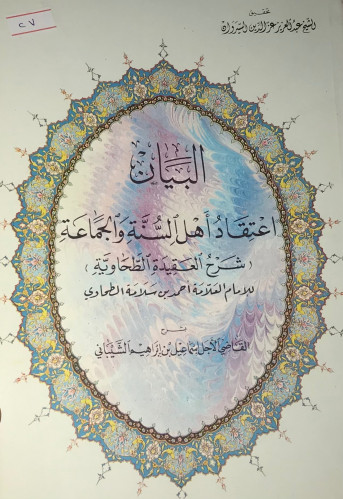 ٢٧
تحقيق
الشيخ عبد العزيز عز الدين السيروان
البيان
اعتقاد أهل السنة والجماعة
(شرح العقيدة الطحاوية)
للإمام العلامة أحمد بن سلامة الطحاوي
شرح
القاضي الأجل إسماعيل بن إبراهيم الشيباني